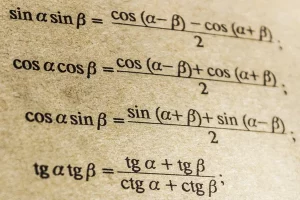 sin α sin β = cos (α− β) − cos (α+ β)
2 ;
cos α cos β = cos (α− β)+ cos (α+ β)
2 ;
cos α sin β = sin (α+ β)+ sin (α− β)
2 ;
tg α + tg β
tg α tg β = ;
ctg α + ctg β